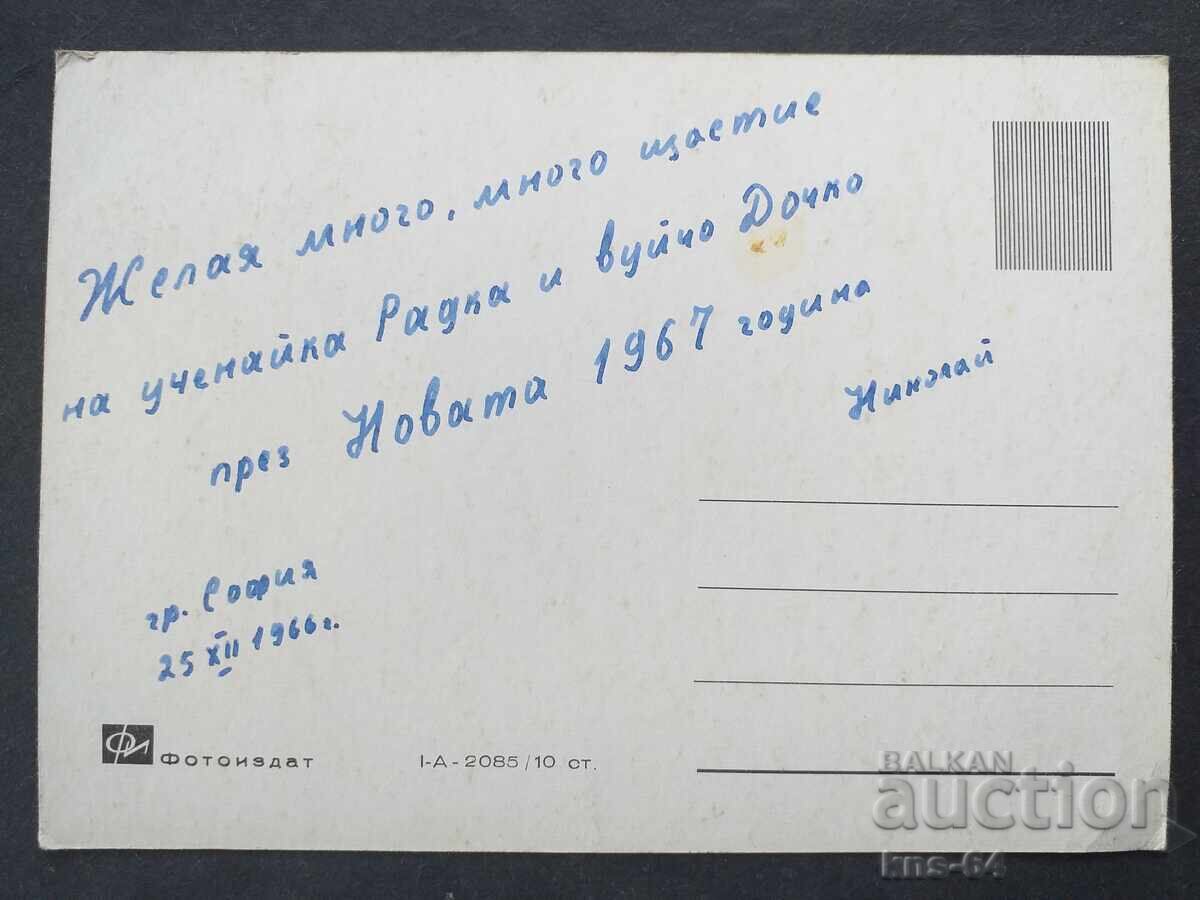 Желая много, много щастие
на ученайка Радка и вуйчо Дочко
през Новата 1967 година
Николай
гр. София
25 XII 1966 г.
ФИ Фотоиздат
I-A-2085/10 ст.
BALKAN
auction
kns-64